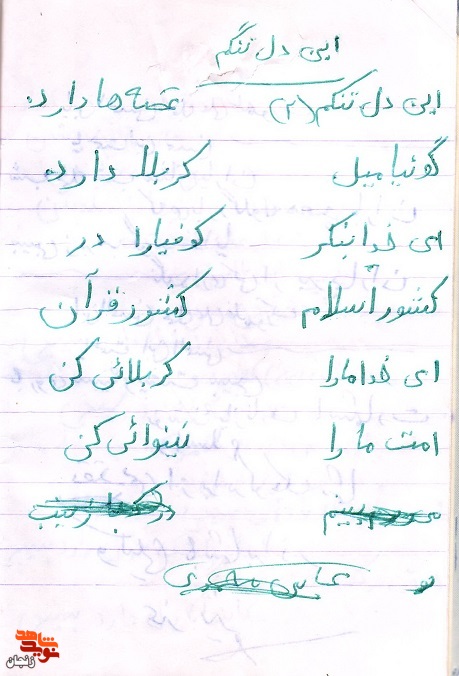 این دل تنگم
این دل تنگم (۲) غصه ها دارد
گوئیا میل کربلا دارد
ای خدا بنگر کوفیارا در
کشور اسلام کشور قرآن
ای خدا مارا کربلائی کن
امت ما را نینوائی کن
زینب
عباس
شاهد
نوید
زنجان